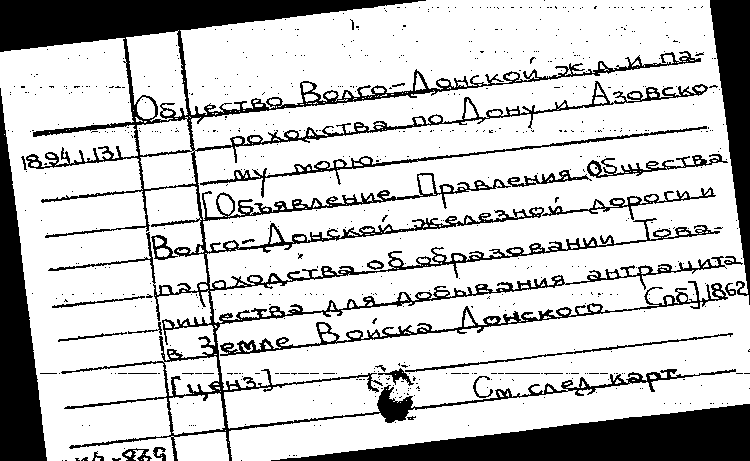 Общество Волго-Донской ж.д. и па-
18.94.1.131
роходства по Дону и Азовско-
му морю.
[Объявление Правления Общества
Волго-Донской железной дороги и
пароходства об образовании Това-
рищества для добывания антрацита
в Земле Войска Донского. Спб], 1862
[ценз.].
См. след. карт.